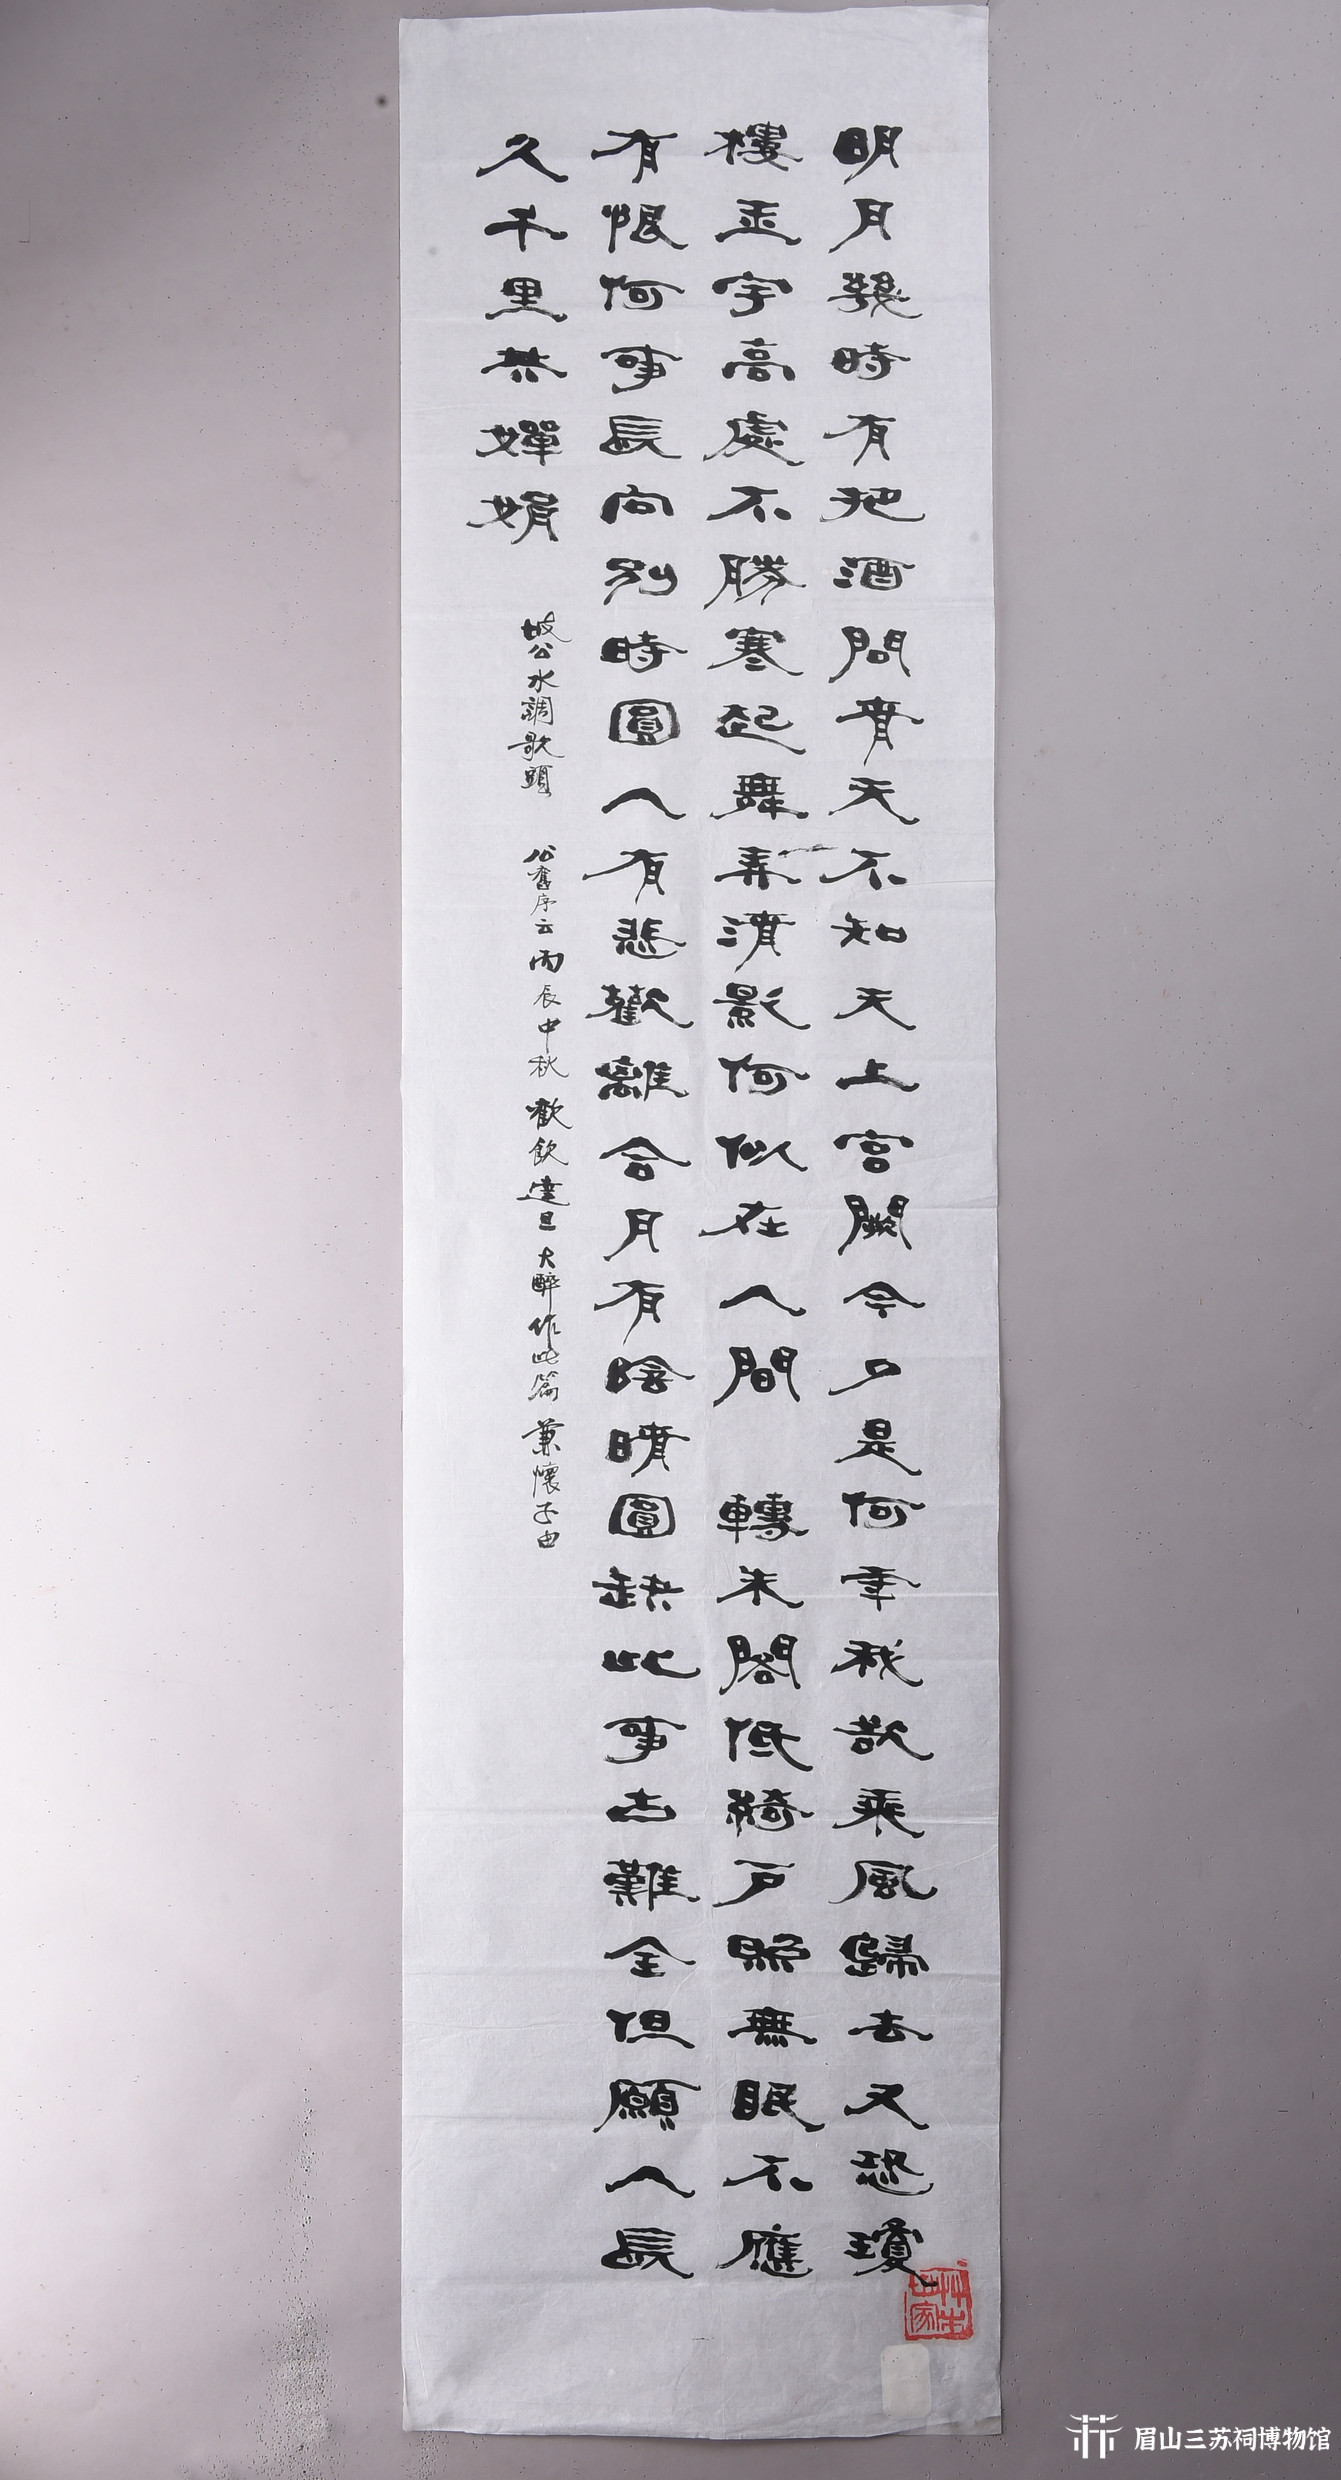 明月幾時有把酒問青天不知天上宮闕今夕是何年我欲乘風歸去又恐瓊
樓玉宇高處不勝寒起舞弄清影何似在人間 轉朱閣低綺戶照無眠不應
有恨何事長向別時圓人有悲歡離合月有陰晴圓缺此事古難全但願人長
久千里共嬋娟
坡公水調歌頭 公舊序云丙辰中秋歡飲達旦大醉作此篇兼懷子由
眉山三苏祠博物馆